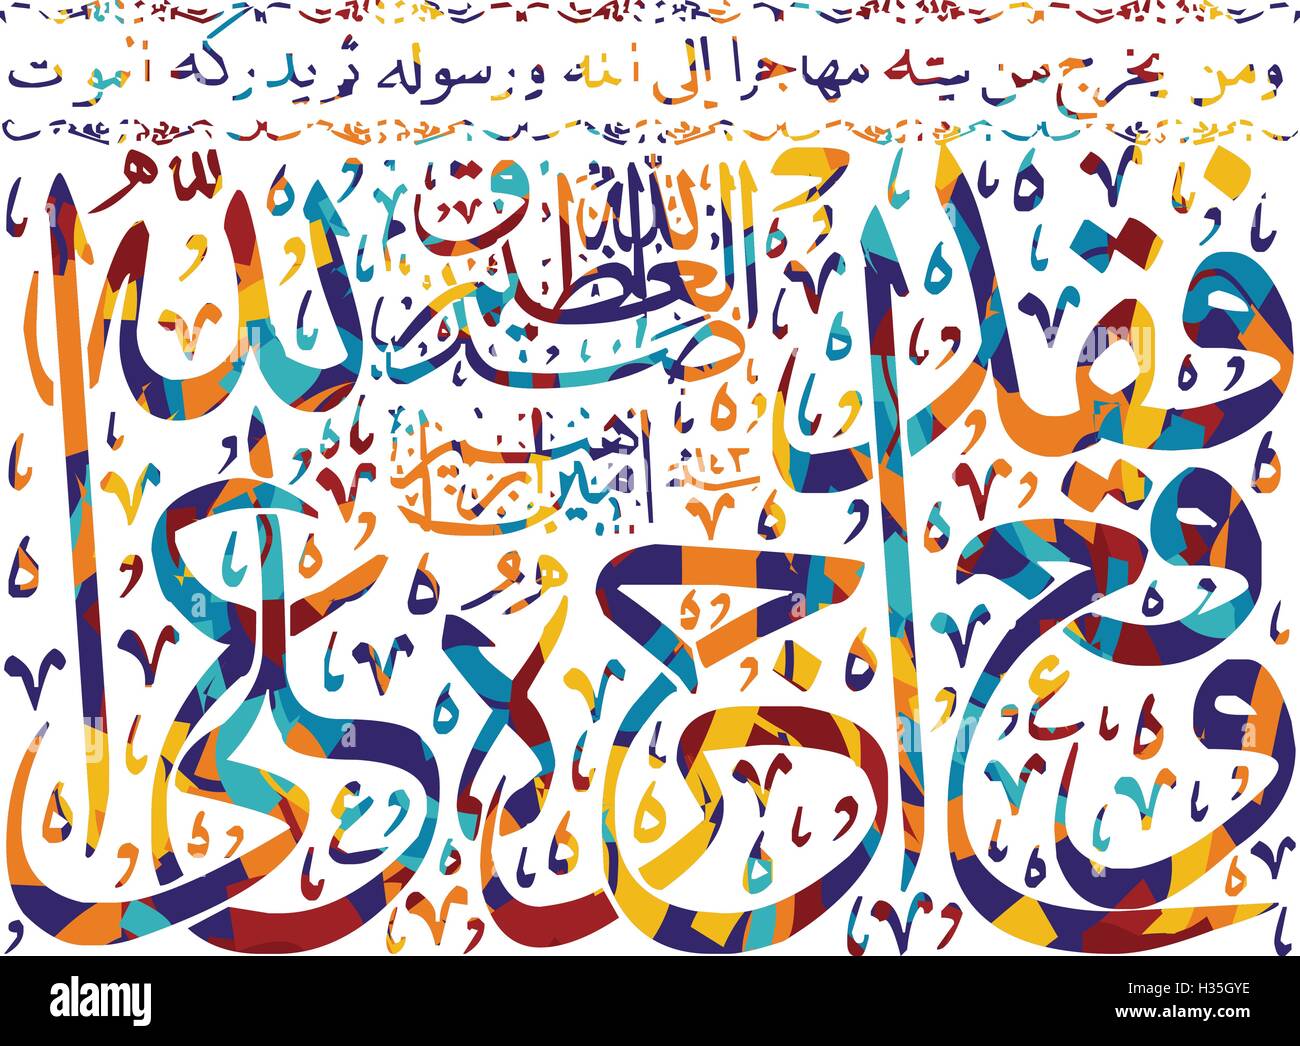 ومن يخرج من بيته مهاجرا إلى الله ورسوله ثم يدركه الموت
فقد وقع أجره على الله
صدق الله العظيم
alamy stock photo
a alamy
Image ID: H35GYE
www.alamy.com